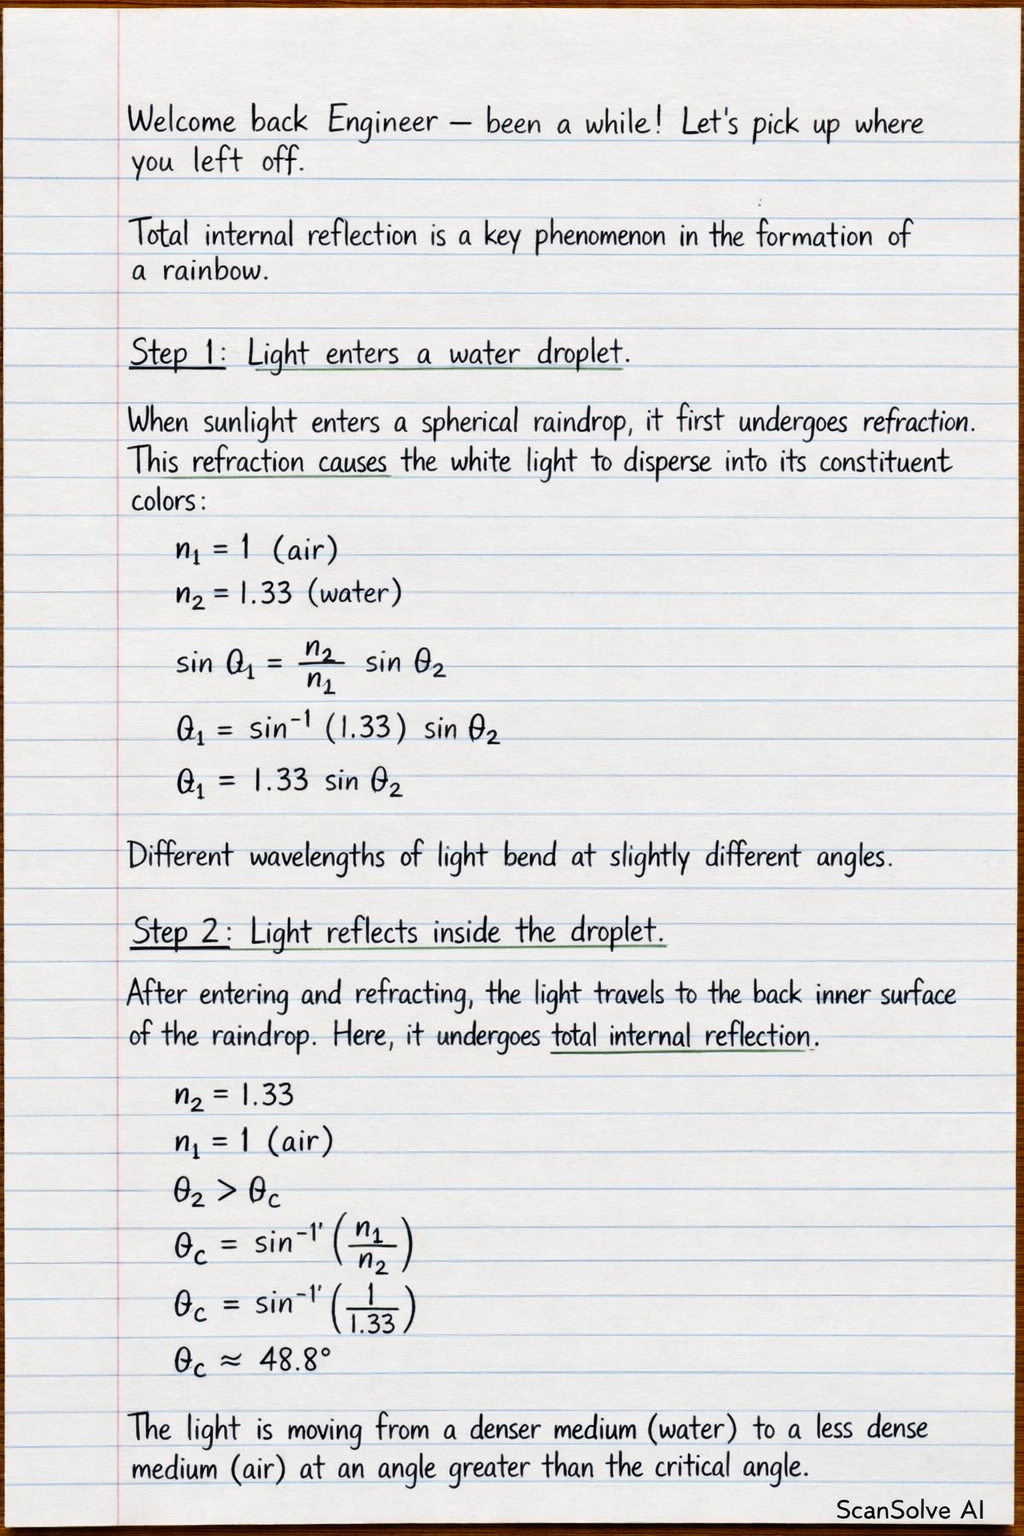 Welcome back Engineer — been a while! Let's pick up where
you left off.
Total internal reflection is a key phenomenon in the formation of
a rainbow.
Step 1: Light enters a water droplet.
When sunlight enters a spherical raindrop, it first undergoes refraction.
This refraction causes the white light to disperse into its constituent
colors:
n₁ = 1 (air)
n₂ = 1.33 (water)
sin θ₁ = n₂/n₁ sin θ₂
θ₁ = sin⁻¹ (1.33) sin θ₂
θ₁ = 1.33 sin θ₂
Different wavelengths of light bend at slightly different angles.
Step 2: Light reflects inside the droplet.
After entering and refracting, the light travels to the back inner surface
of the raindrop. Here, it undergoes total internal reflection.
n₂ = 1.33
n₁ = 1 (air)
θ₂ > θc
θc = sin⁻¹' (n₁/n₂)
θc = sin⁻¹' (1/1.33)
θc ≈ 48.8°
The light is moving from a denser medium (water) to a less dense
medium (air) at an angle greater than the critical angle.
ScanSolve AI